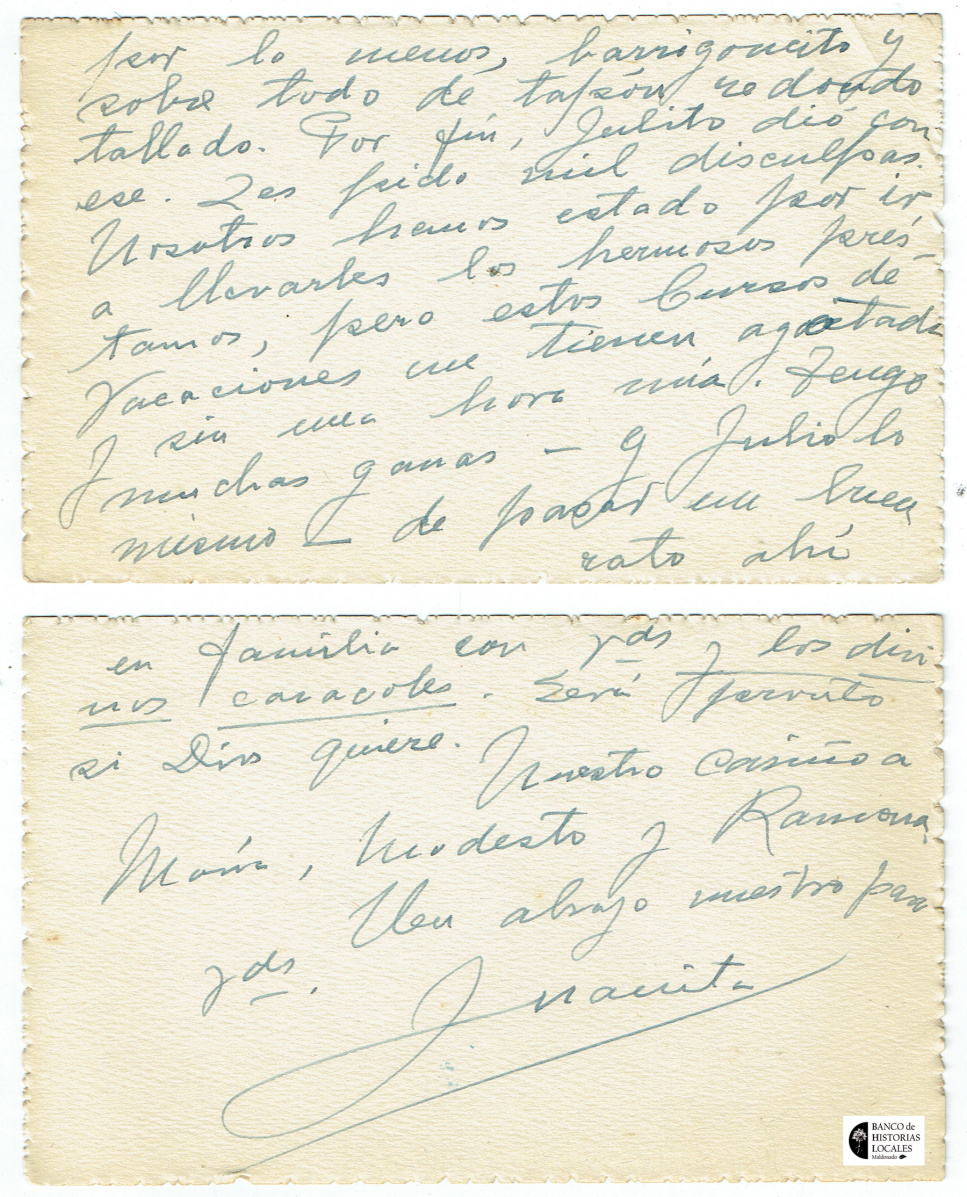 por lo menos, barrigoncito y
sobre todo de tapón redondo
tallado. Por fin, Julito dió con
ese. Les pido mil disculpas.
Nosotros hemos estado por ir
a llevarles los hermosos prés-
tamos, pero estos Cursos de
Vacaciones me tienen agotada
y sin una hora mía. Tengo
muchas ganas — y Julio lo
mismo — de pasar un buen
rato ahí
en familia con Vds y los divi-
nos caracoles. Será pronto
si Dios quiere.
Nuestro cariño a
María, Modesto y Ramona
Un abrazo nuestro para
Vds.
Juanita
BANCO de
HISTORIAS
LOCALES
Maldonado